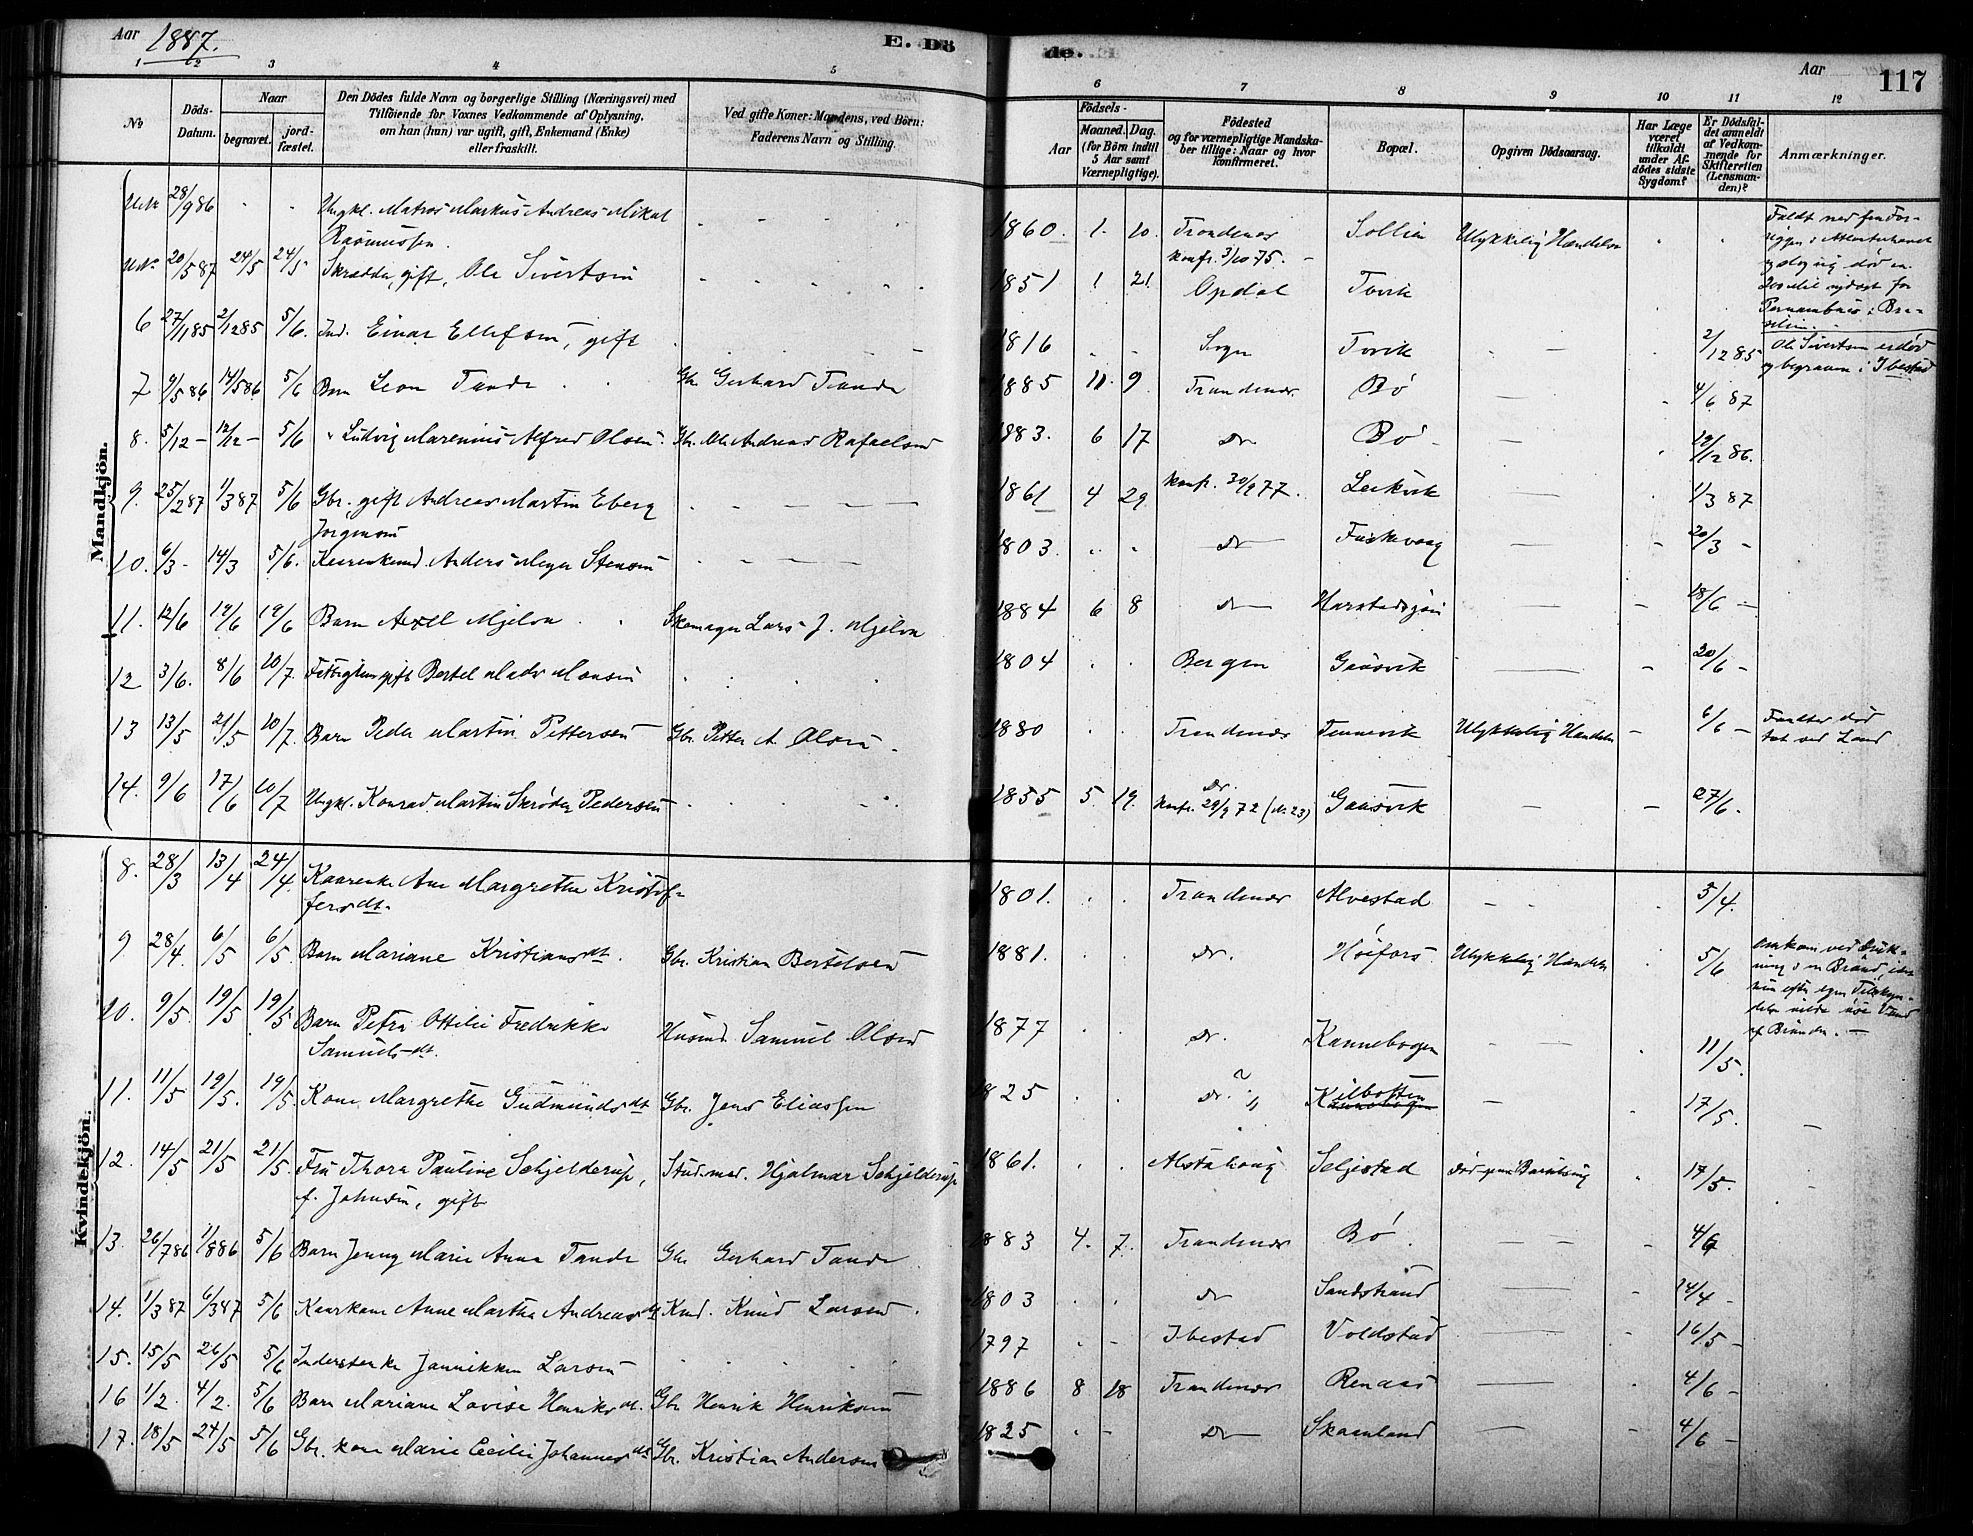 Aar 1887. E. Dö
de. Aar 117
1 2 3 4 5
6 7 8 9 10 11 12
No Döds-Datum. Naar begravet. jordfæstet. Den Dödes fulde Navn og borgerlige Stilling (Næringsvei) med Tilföiende for Voxnes Vedkommende af Oplysning, om han (hun) var ugift, gift, Enkemand (Enke) eller fraskilt. Ved gifte Koner: Mandens, ved Börn: Faderens Navn og Stilling.
Födsels- Aar Maaned. Dag. (for Börn indtil 5 Aar samt Værnepligtige). Födested og for værnepligtige Mandskaber tillige: Naar og hvor konfirmeret. Bopæl. Opgiven Dödsaarsag. Har Læge været tilkaldt under Afdödes sidste Sygdom? Er Dödsfaldet anmeldt af Vedkommende for Skifteretten (Lensmanden)? Anmærkninger.
Mandkjön.
28/9 86 Ungkl. Matros Markus Andreas Mikal Rasmussen. 1860. 1. 10. Trondenæs konf. 3/10 75. Sollien Ulykkelig Hændelse
20/5 87 24/5 24/5 Skrædder, gift, Ole Sivertsen 1851 1 21 Opdal Tovik
6 27/11 85 2/12 85 5/6. Ind. Einar Ellefsen, gift 1816 Sogn Tovik 2/12 85 Ole Sivertsen er død og begraven i Ibestad
7 9/5 86 14/5 86 5/6 Barn Leon Tande Gbr. Gerhard Tande 1885 11. 9. Trondenæs Bö 4/6 87
8. 5/12 - 12/12 - 5/6 " Ludvig Marenius Alfred Olsen. Gbr. Ole Andreas Rafaelsen 1883. 6 17 Do Bö 19/12 86.
9. 25/2 87 1/3 87 5/6 Gbr. gift Andreas Martin Eberg Jørgensen 1861 4 29 konf. 30/9 77. Leikvik 1/3 87
10. 6/3 - 14/3 5/6. Anders Meyer Stensen 1803. Do 20/3 -
11. 12/6 19/6 19/6 Barn Axel Mjelva Skomager Lars J. Mjelva 1884 6 8 Do Harstadsjøen 18/6 -
12 3/6. 8/6 10/7. gift Bertel Mads Monsen 1804 Bergen Gaasvik 20/6 -
13 13/5 21/5 10/7. Barn Peder Martin Pettersen Gbr. Petter A. Olsen. 1880 Trondenæs Tennevik Ulykkelig Hændelse 6/6 - Fandtes død tæt ved Land
14. 9/6 17/6 10/7 Ungkl. Konrad Martin Skrøder Pedersen 1855 5. 19. Do. konf. 29/9 72 (No. 23) Gaasvik 27/6.
Kvindekjön.
8. 28/3 13/4 24/4. Kaarenke Ane Margrethe Kristoffersdt. 1801. Trondenæs Alvestad 5/4.
9 28/4. 6/5 6/5. Barn Mariane Kristiansdt. Gbr. Kristian Bertelsen 1881. do. Höifors Ulykkelig Hændelse 5/6 omkom ved Drukning i en Brønd,
10. 9/5. 19/5 19/5 Barn Petra Ottilie Fredrikke Samuelsdt. Husmd. Samuel Olsen 1877 do. Kannebogen 11/5.
11. 11/5 19/5. 19/5. Kone Margrethe Gudmundsdt Gbr. Jens Eliassen 1825 do. Kilbotten 17/5.
12. 14/5 21/5 21/5. Fru Thora Pauline Schjelderup, f. Johnsen, gift Stud. med. Hjalmar Schjelderup 1861. Alstahoug Seljestad død paa Barselseng 17/5.
13. 26/7 86 1/8 86 5/6 Barn Jenny Marie Anna Tande Gbr Gerhard Tande 1883 4. 7. Trondenæs Bö. 4/6
14. 1/3 87 6/3 87 5/6 Kaarkone Anne Martha Andreasdt Kmd. Knud Larsen. 1803 do Sandstrand 14/4 -
15. 15/5 26/5 5/6 Jannikken Larsen 1797 Ibestad Voldstad 16/5 -
16 1/2. 4/2. 5/6 Barn Mariane Lovise Henriksdt. Gbr Henrik Henriksen 1886 8 18 Trondenæs Renaas 4/6 -
17. 18/5 24/5 5/6 Gbr. kone Marie Cecilie Johannesdt Gbr. Kristian Andersen 1825 do Skaanland 4/6 -